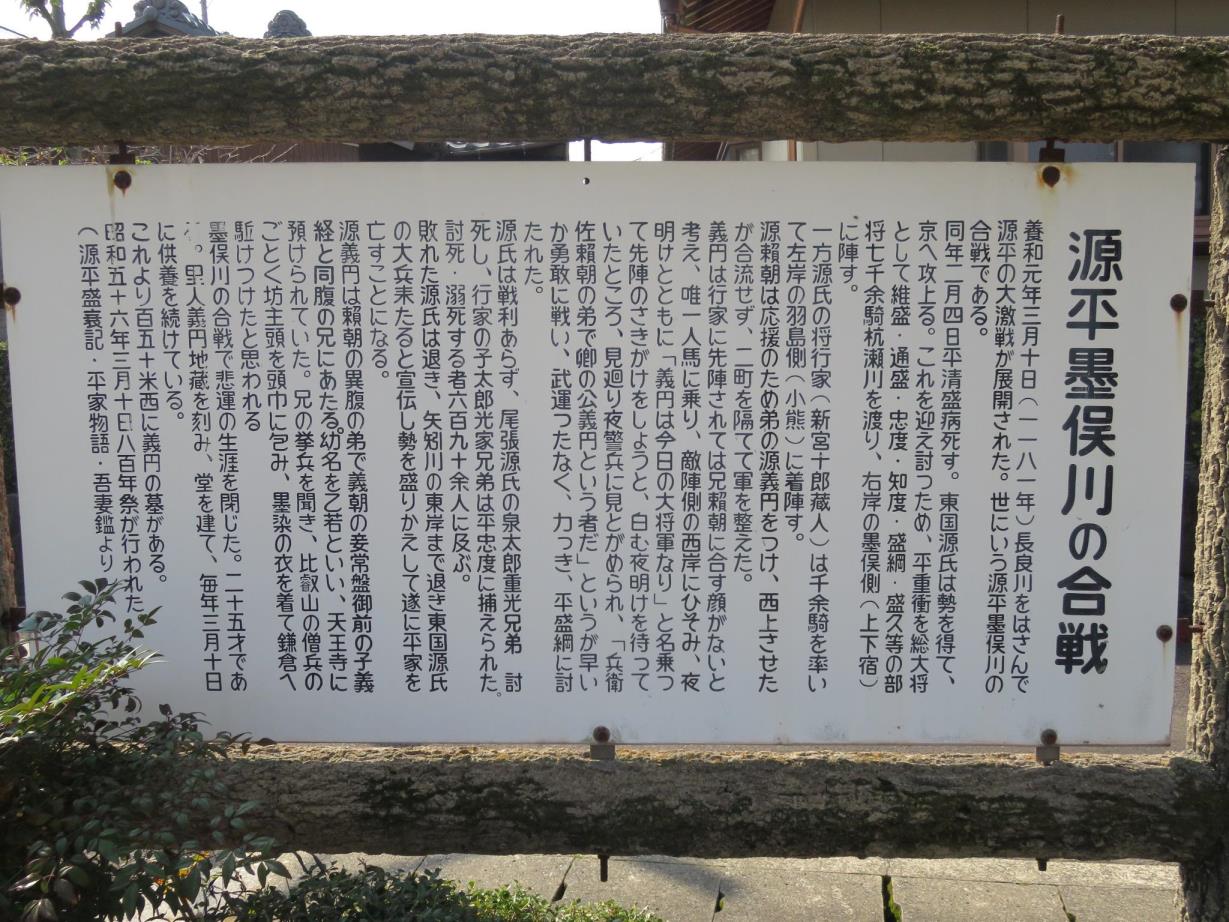 源平墨俣川の合戦
養和元年三月十日(一一八一年)長良川をはさんで
源平の大激戦が展開された。世にいう源平墨俣川の
合戦である。
同年二月四日平清盛病死す。東国源氏は勢を得て、
京へ攻上る。これを迎え討つため、平重衡を総大将
として維盛・通盛・忠度・知度・盛綱・盛久等の部
将七千余騎杭瀬川を渡り、右岸の墨俣側(上下宿)
に陣す。
一方源氏の将行家(新宮十郎蔵人)は千余騎を率い
て左岸の羽島側(小熊)に着陣す。
源頼朝は応援のため弟の源義円をつけ、西上させた
が合流せず、二町を隔てて軍を整えた。
義円は行家に先陣されては兄頼朝に合す顔がないと
考え、唯一人馬に乗り、敵陣側の西岸にひそみ、夜
明けとともに「義円は今日の大将軍なり」と名乗つ
て先陣のさきがけをしようと、白む夜明けを待って
いたところ、見廻り夜警兵に見とがめられ、「兵衛
佐頼朝の弟で卿の公義円という者だ」というが早い
か勇敢に戦い、武運つたなく、力つき、平盛綱に討
たれた。
源氏は戦利あらず、尾張源氏の泉太郎重光兄弟 討
死し、行家の子太郎光家兄弟は平忠度に捕えられた。
討死・溺死する者六百九十余人に反ぶ。
敗れた源氏は退き、矢矧川の東岸まで退き東国源氏
の大兵来たると宣伝し勢を盛りかえして遂に平家を
亡すことになる。
源義円は頼朝の異腹の弟で義朝の妾常盤御前の子義
経と同腹の兄にあたる。幼名を乙若といい、天王寺に
預けられていた。兄の挙兵を聞き、比叡山の僧兵の
ごとく坊主頭を頭巾に包み、墨染の衣を着て鎌倉へ
馳けつけたと思われる
墨俣川の合戦で悲運の生涯を閉じた。二十五才であ
。里人義円地蔵を刻み、堂を建て、毎年三月十日
に供養を続けている。
これより百五十米西に義円の墓がある。
昭和五十六年三月十日八百年祭が行われた
(源平盛衰記・平家物語・吾妻鑑より